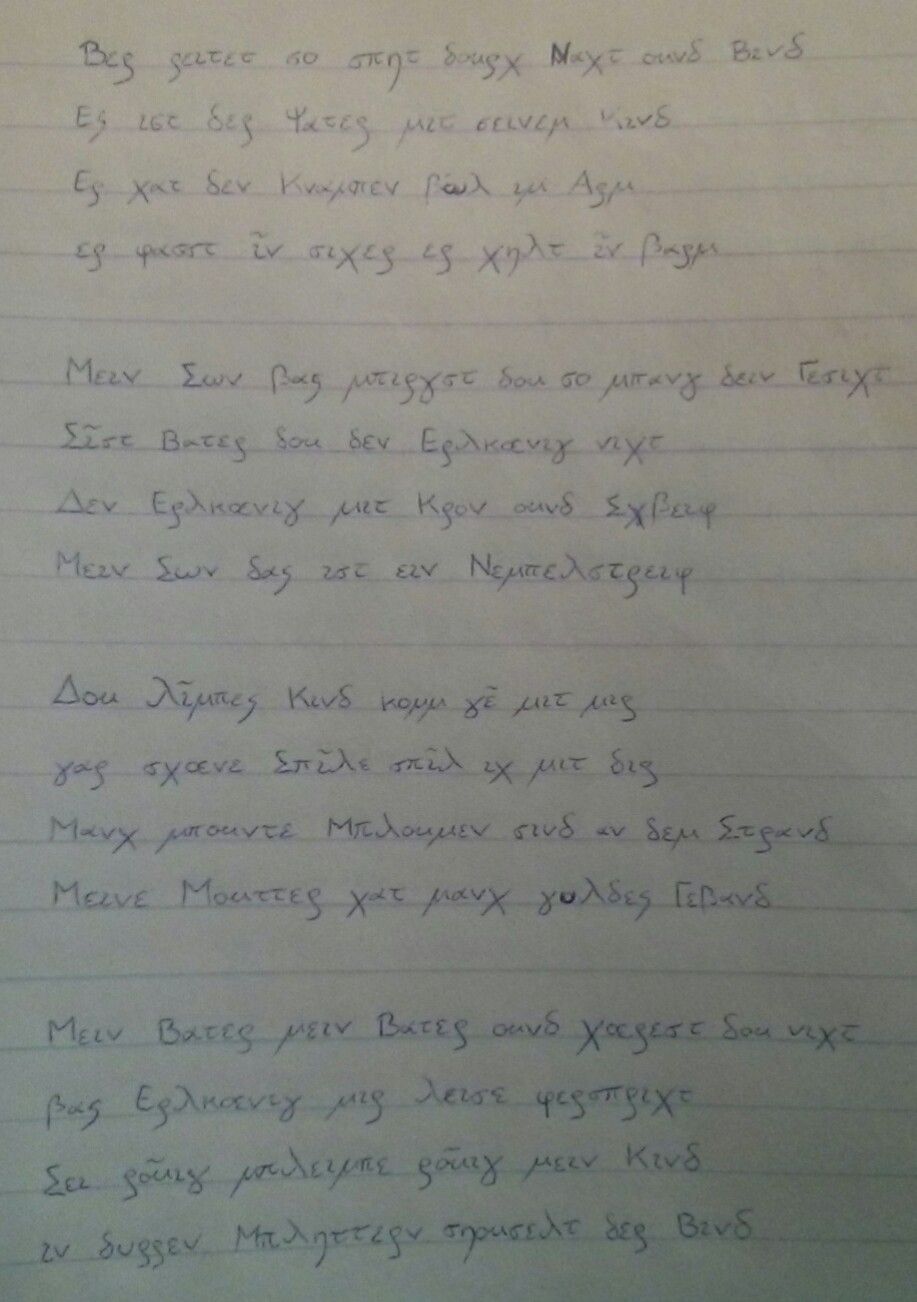 Βερ ρειτετ σο σπητ δουρχ Ναχτ ουνδ Βινδ
Ες ιστ δερ Φατερ μιτ σεινεμ Κινδ
Ερ χατ δεν Κναμπεν βοωλ ιμ Αρμ
ερ φασστ ῖν σιχερ ερ χηλτ ῖν βαρμ
Μειν Σων βας μπιργστ δου σο μπανγ δειν Γεσιχτ
Σῖστ Βατερ δου δεν Ερλκοενιγ νιχτ
Δεν Ερλκοενιγ μιτ Κρον ουνδ Σχβειφ
Μειν Σων δας ιστ ειν Νεμπελστρειφ
Δου λῖμπες Κινδ κομμ γε̃ μιτ μιρ
γαρ σχοενε Σπῖλε σπῖλ ιχ μιτ διρ
Μανχ μπουντε Μπλουμεν σινδ αν δεμ Στρανδ
Μεινε Μουττερ χατ μανχ γυλδες Γεβανδ
Μειν Βατερ μειν Βατερ ουνδ χοερεστ δου νιχτ
βας Ερλκοενιγ μιρ λεισε φερσπριχτ
Σει ροῦιγ μπλειμπε ροῦιγ μειν Κινδ
ιν δυρρεν Μπληττερν σηουσελτ δερ Βινδ